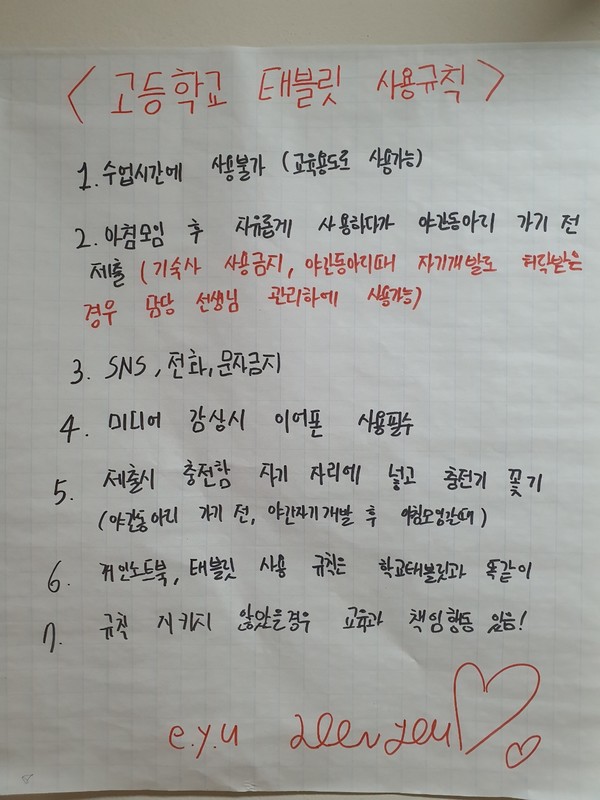 <고등학교 태블릿 사용규칙>
1. 수업시간에 사용불가 (교육용도로 사용가능)
2. 아침모임 후 자유롭게 사용하다가 야간동아리 가기 전
제출 (기숙사 사용금지, 야간동아리때 자기개발로 허락받은
경우 담당 선생님 관리하에 사용가능)
3. SNS, 전화, 문자금지
4. 미디어 감상시 이어폰 사용필수
5. 제출시 충전함 자기 자리에 넣고 충전기 꽂기
(야간동아리 가기 전, 야간자기개발 후
6. 개인노트북, 태블릿 사용 규칙은 학교태블릿과 똑같이
7. 규칙 지키지 않았을경우 교육과 책임행동 있음!
e.y.u